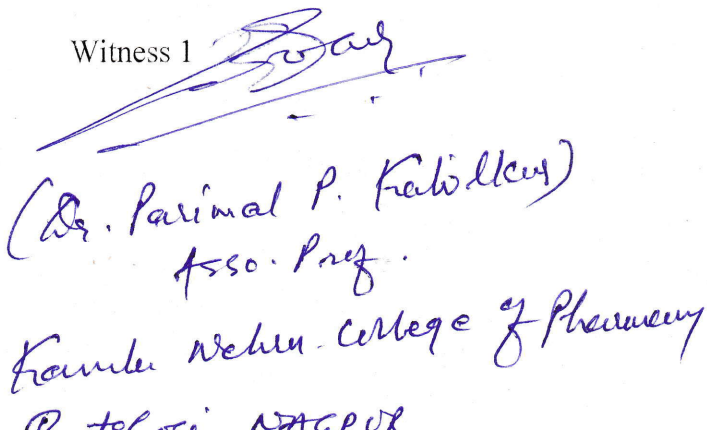 Witness 1
(Dr. Parimal P. Katolkar)
Asso. Prof.
Kamla Nehru College of Pharmacy
NAGPUR